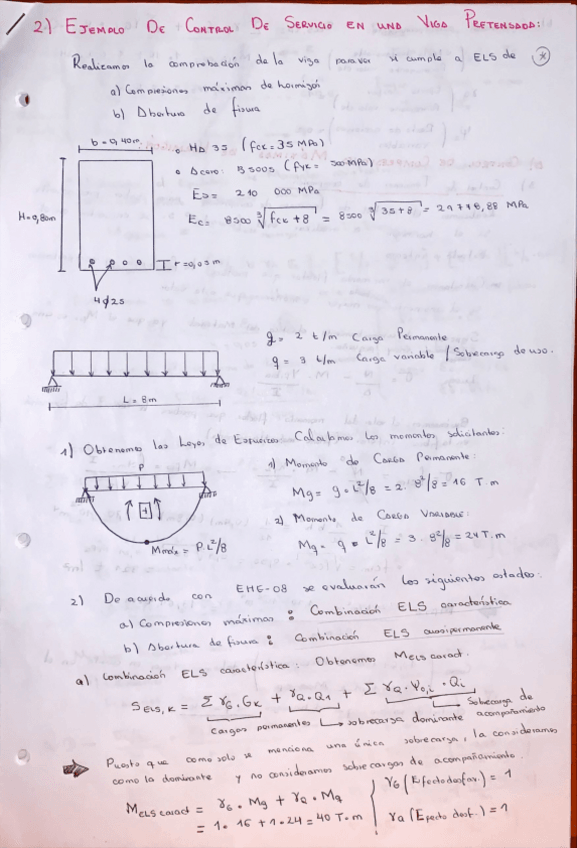 2) EJEMPLO DE CONTROL DE SERVICIO EN UNA VIGA PRETENSADA:
Realizamos la comprobación de la viga para ver si cumple a ELS de
a) Compresiones máximas de hormigón
b) Abertura de fisura
b = 0,40m
H=0,80m
r=0,05m
4ϕ25
• HA 35 (fck = 35 MPa)
• Acero: B500S (fyk = 500 MPa)
Es = 210 000 MPa
Ec = 8500 ∛fck + 8 = 8500 ∛35+8 = 29778,88 MPa
g = 2 t/m Carga Permanente
q = 3 t/m Carga variable / Sobrecarga de uso.
L = 8m
1) Obtenemos las Leyes de Esfuerzos Calculamos los momentos solicitantes:
P
+
Mmáx = P.L²/8
1) Momento de CARGA PERMANENTE:
Mg = g • L²/8 = 2 . 8²/8 = 16 T.m
2) Momento de CARGA VARIABLE:
Mq = q • L²/8 = 3 . 8²/8 = 24 T.m
2) De acuerdo con EHE-08 se evaluarán los siguientes estados:
a) Compresiones máximas : Combinación ELS característica
b) Abertura de fisura : Combinación ELS cuasipermanente
a) Combinación ELS característica: Obtenemos MELS caract.
SELS, K = Σ γG . GK + γQ . Q1 + Σ γQ . Ψ0,i . Qi
cargas permanentes sobrecarga dominante Sobrecarga de acompañamiento
Puesto que como solo se menciona una única sobrecarga, la consideramos
como la dominante y no consideramos sobrecargas de acompañamiento.
MELS caract = γG . Mg + γQ . Mq
= 1 . 16 + 1 . 24 = 40 T.m
γG (Efecto desfav.) = 1
γQ (Efecto desf.) = 1